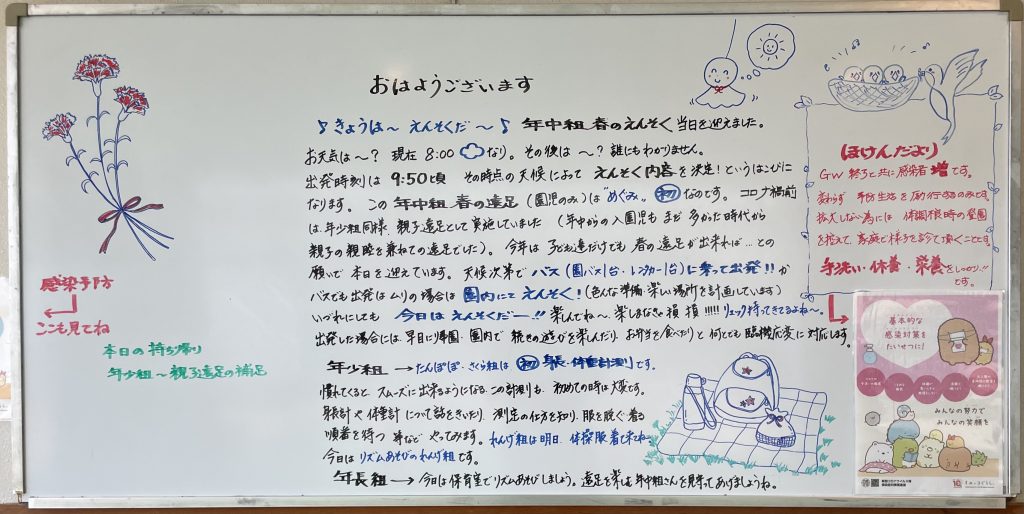 おはようございます
♪きょうは〜 えんそくだ〜♪ 年中組 春のえんそく 当日を迎えました。
お天気は〜? 現在 8:00 なり。その後は〜?誰にもわかりません。
出発時刻は 9:50頃 その時点の天候によって えんそく内容を決定!というはこびに
なります。この年中組 春の遠足(園児のみ)は"めぐみ。初なのです。コロナ禍前
は年少組同様、親子遠足として実施していました(年中からの入園児もまだ多かった時代から
親子の親睦を兼ねての遠足でした)。今年は子ども達だけでも春の遠足が出来れば…との
願いで本日を迎えています。天候次第でバス(園バス1台・レンタカー1台)に乗って出発!!か
バスでも出発はムリの場合は園内にてえんそく!(色んな準備・楽しい場所を計画しています)
いづれにしても 今日はえんそくだー!!楽しんでね〜、楽しまなきゃ損損!!!!!リュック持ってきてるよね〜。
出発した場合には、早目に帰園 園内で 続きの遊びを楽しんだり お弁当を食べたりと何とでも臨機応変に対応します。
年少組→たんぽぽ・さくら組は 初 身長・体重計測です。
慣れてくると スムーズに出来るようになるこの計測も、初めての時は大変です。
身長計や体重計について話をきいたり、測定の仕方を知り、服を脱ぐ着る
順番を待つ 等など やってみます。れんげ組は明日、体操服着て来てね
今日はリズムあそびのれんげ組です。
年長組→今日は保育室でリズムあそびしましょう。遠足を楽しむ年中組さんを見守ってあげましょうね。
感染予防
ここも見てね
本日の持ち帰り
年少組〜親子遠足の補足
ほけんだより
GW終了と共に感染者増です。
変わらず 予防生活を励行するのみです。
拡大しない為には 体調不良時の登園
を控えて、家庭で様子を診て頂くことです。
手洗い・休養・栄養をしっかり!!
です。
基本的な
感染対策を
たいせつに!
みんなの努力で
みんなの笑顔を